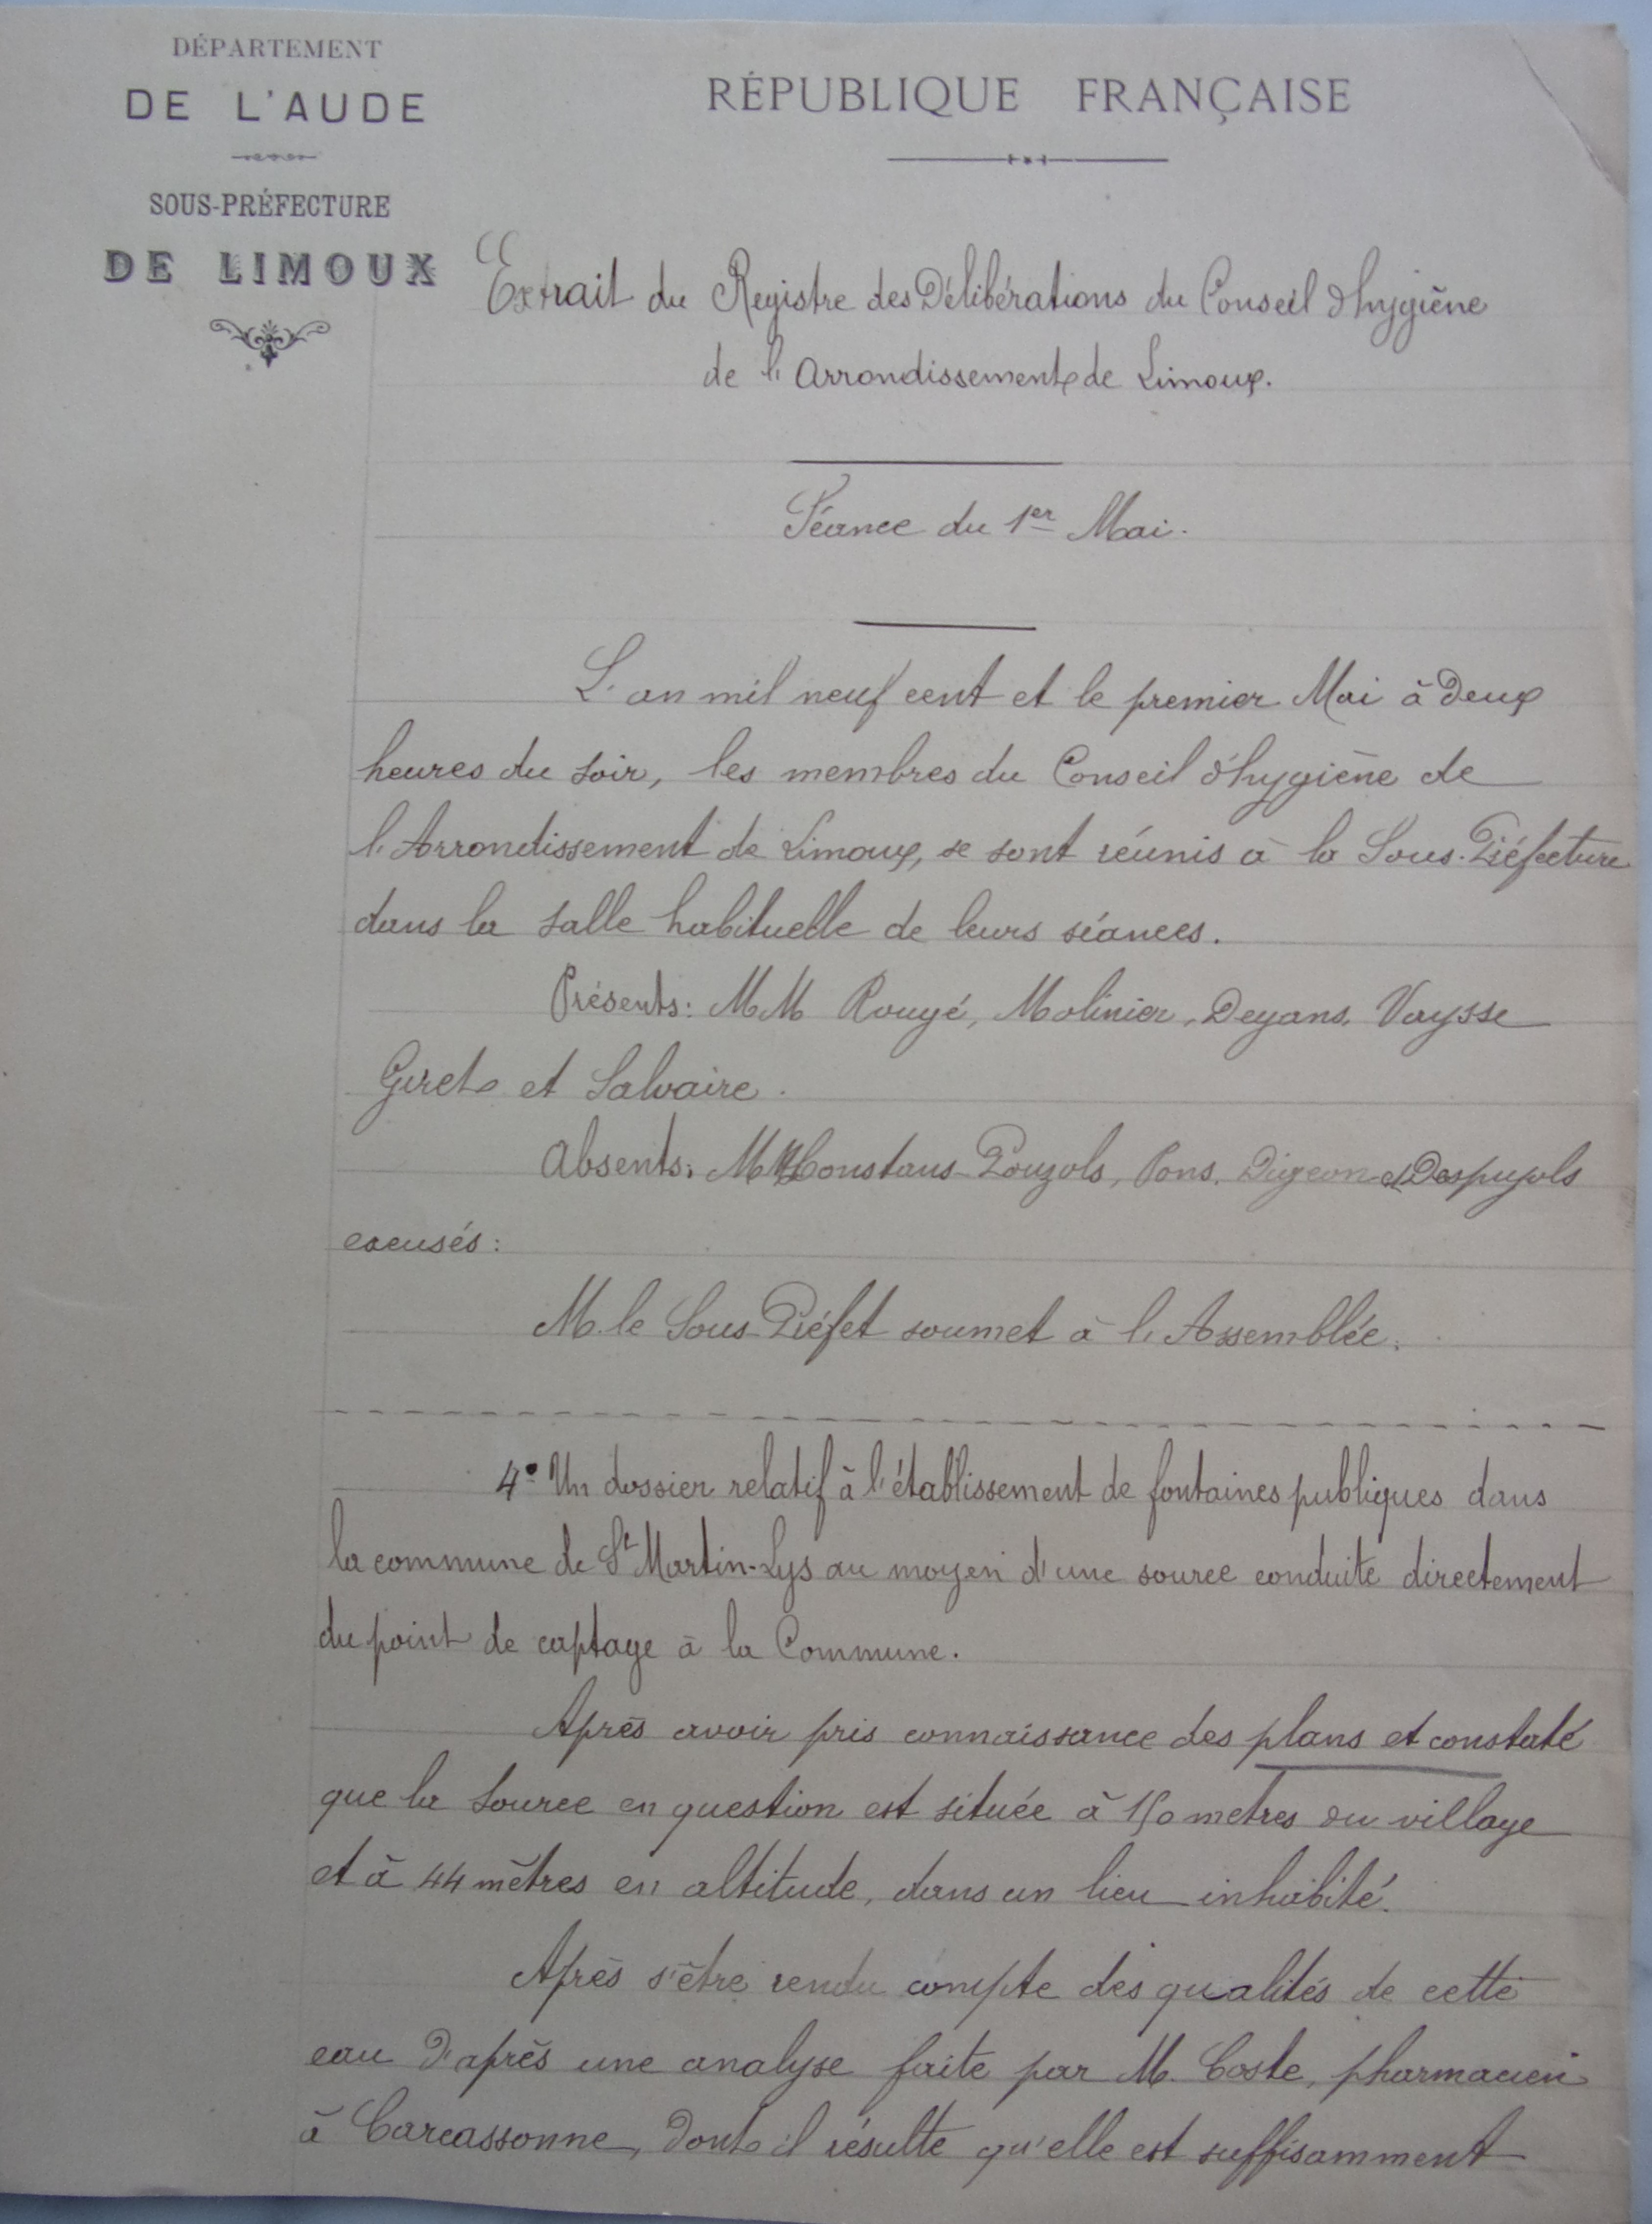 DÉPARTEMENT
DE L'AUDE
SOUS-PRÉFECTURE
DE LIMOUX
RÉPUBLIQUE FRANÇAISE
Extrait du Registre des Délibérations du Conseil d'hygiène
de l'Arrondissement de Limoux.
Séance du 1er Mai.
L'an mil neuf cent et le premier Mai à deux
heures du soir, les membres du Conseil d'hygiène de
l'Arrondissement de Limoux, se sont réunis à la Sous-Préfecture
dans la salle habituelle de leurs séances.
Présents: MM Rougé, Molinier, Deyans, Vaysse
Giret et Salvaire.
Absents: MM Constans-Pouzols, Pons, Digeon et Despujols
excusés:
M. le Sous-Préfet soumet à l'Assemblée:
4° Un dossier relatif à l'établissement de fontaines publiques dans
la commune de St Martin-Lys au moyen d'une source conduite directement
du point de captage à la Commune.
Après avoir pris connaissance des plans et constaté
que la source en question est située à 150 metres du village
et à 44 mètres en altitude, dans un lieu inhabité.
Après s'être rendu compte des qualités de cette
eau d'après une analyse faite par M. Coste, pharmacien
à Carcassonne, dont il résulte qu'elle est suffisamment